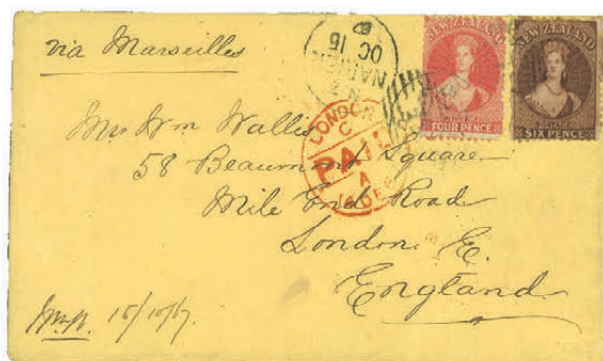 via Marseilles
NEW ZEALAND
FOUR PENCE
NEW ZEALAND
SIX PENCE
OC 15
LONDON
PAID
Mrs Wm Wallis
58 Beaumont Square
Mile End Road
London. E.
England
15/10/67.